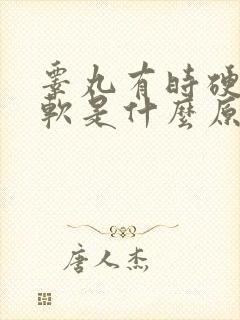 睾丸有時硬
軟是什麼原
唐人杰